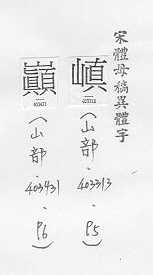 宋體母稿異體字
嵮
403313
(山部.403313.P5)
巔
403431
(山部.403431.P6)